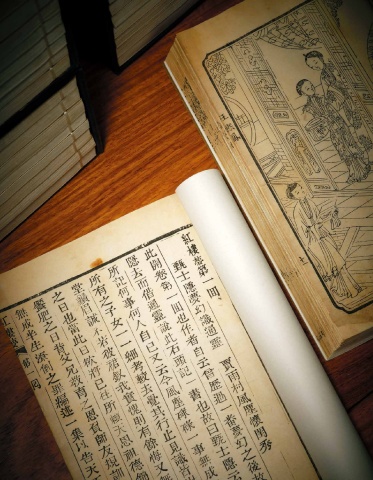 紅樓夢第一回
甄士隱夢幻識通靈 賈雨村風塵懷閨秀
此開卷第一回也作者自云曾歷過一番夢幻之後故
隱去而借通靈說此石頭記一書也故曰甄士隱云
所記何事何人自己又云今風塵碌碌一事無成
所有之子女一一細考較去覺其行止見識皆
堂堂鬚眉誠不若彼裙釵我實愧則有餘悔又
之日也當此日欲將已往所賴天恩祖德錦
饜肥之日背父兄教育之恩負師友規訓
無成半生潦倒之罪編述一集以告天